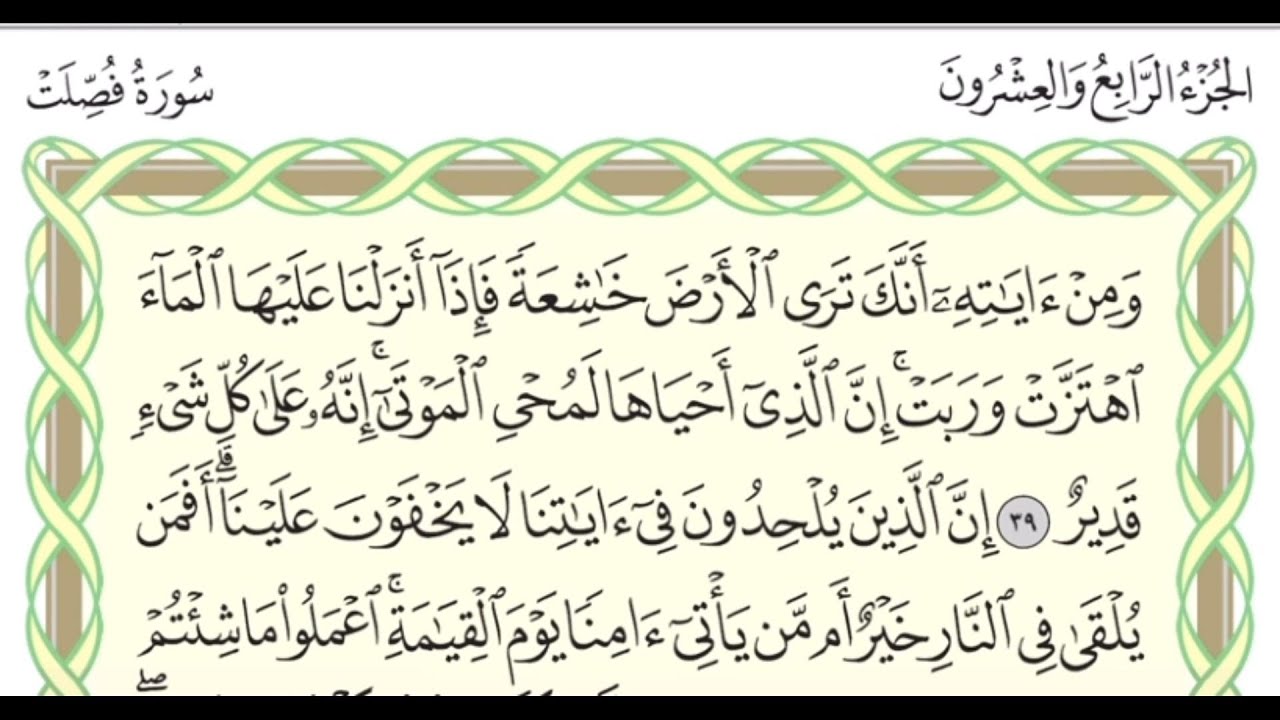 الجُزْءُ الرَّابِعُ وَالعِشْرُونَ
سُورَةُ فُصِّلَتْ
وَمِنْ ءَايَٰتِهِۦٓ أَنَّكَ تَرَى ٱلْأَرْضَ خَٰشِعَةً فَإِذَآ أَنزَلْنَا عَلَيْهَا ٱلْمَآءَ
ٱهْتَزَّتْ وَرَبَتْ ۚ إِنَّ ٱلَّذِىٓ أَحْيَاهَا لَمُحْىِ ٱلْمَوْتَىٰٓ ۚ إِنَّهُۥ عَلَىٰ كُلِّ شَىْءٍ
قَدِيرٌ ٣٩ إِنَّ ٱلَّذِينَ يُلْحِدُونَ فِىٓ ءَايَٰتِنَا لَا يَخْفَوْنَ عَلَيْنَآ ۗ أَفَمَن
يُلْقَىٰ فِى ٱلنَّارِ خَيْرٌ أَم مَّن يَأْتِىٓ ءَامِنًا يَوْمَ ٱلْقِيَٰمَةِ ۚ ٱعْمَلُوا۟ مَا شِئْتُمْ